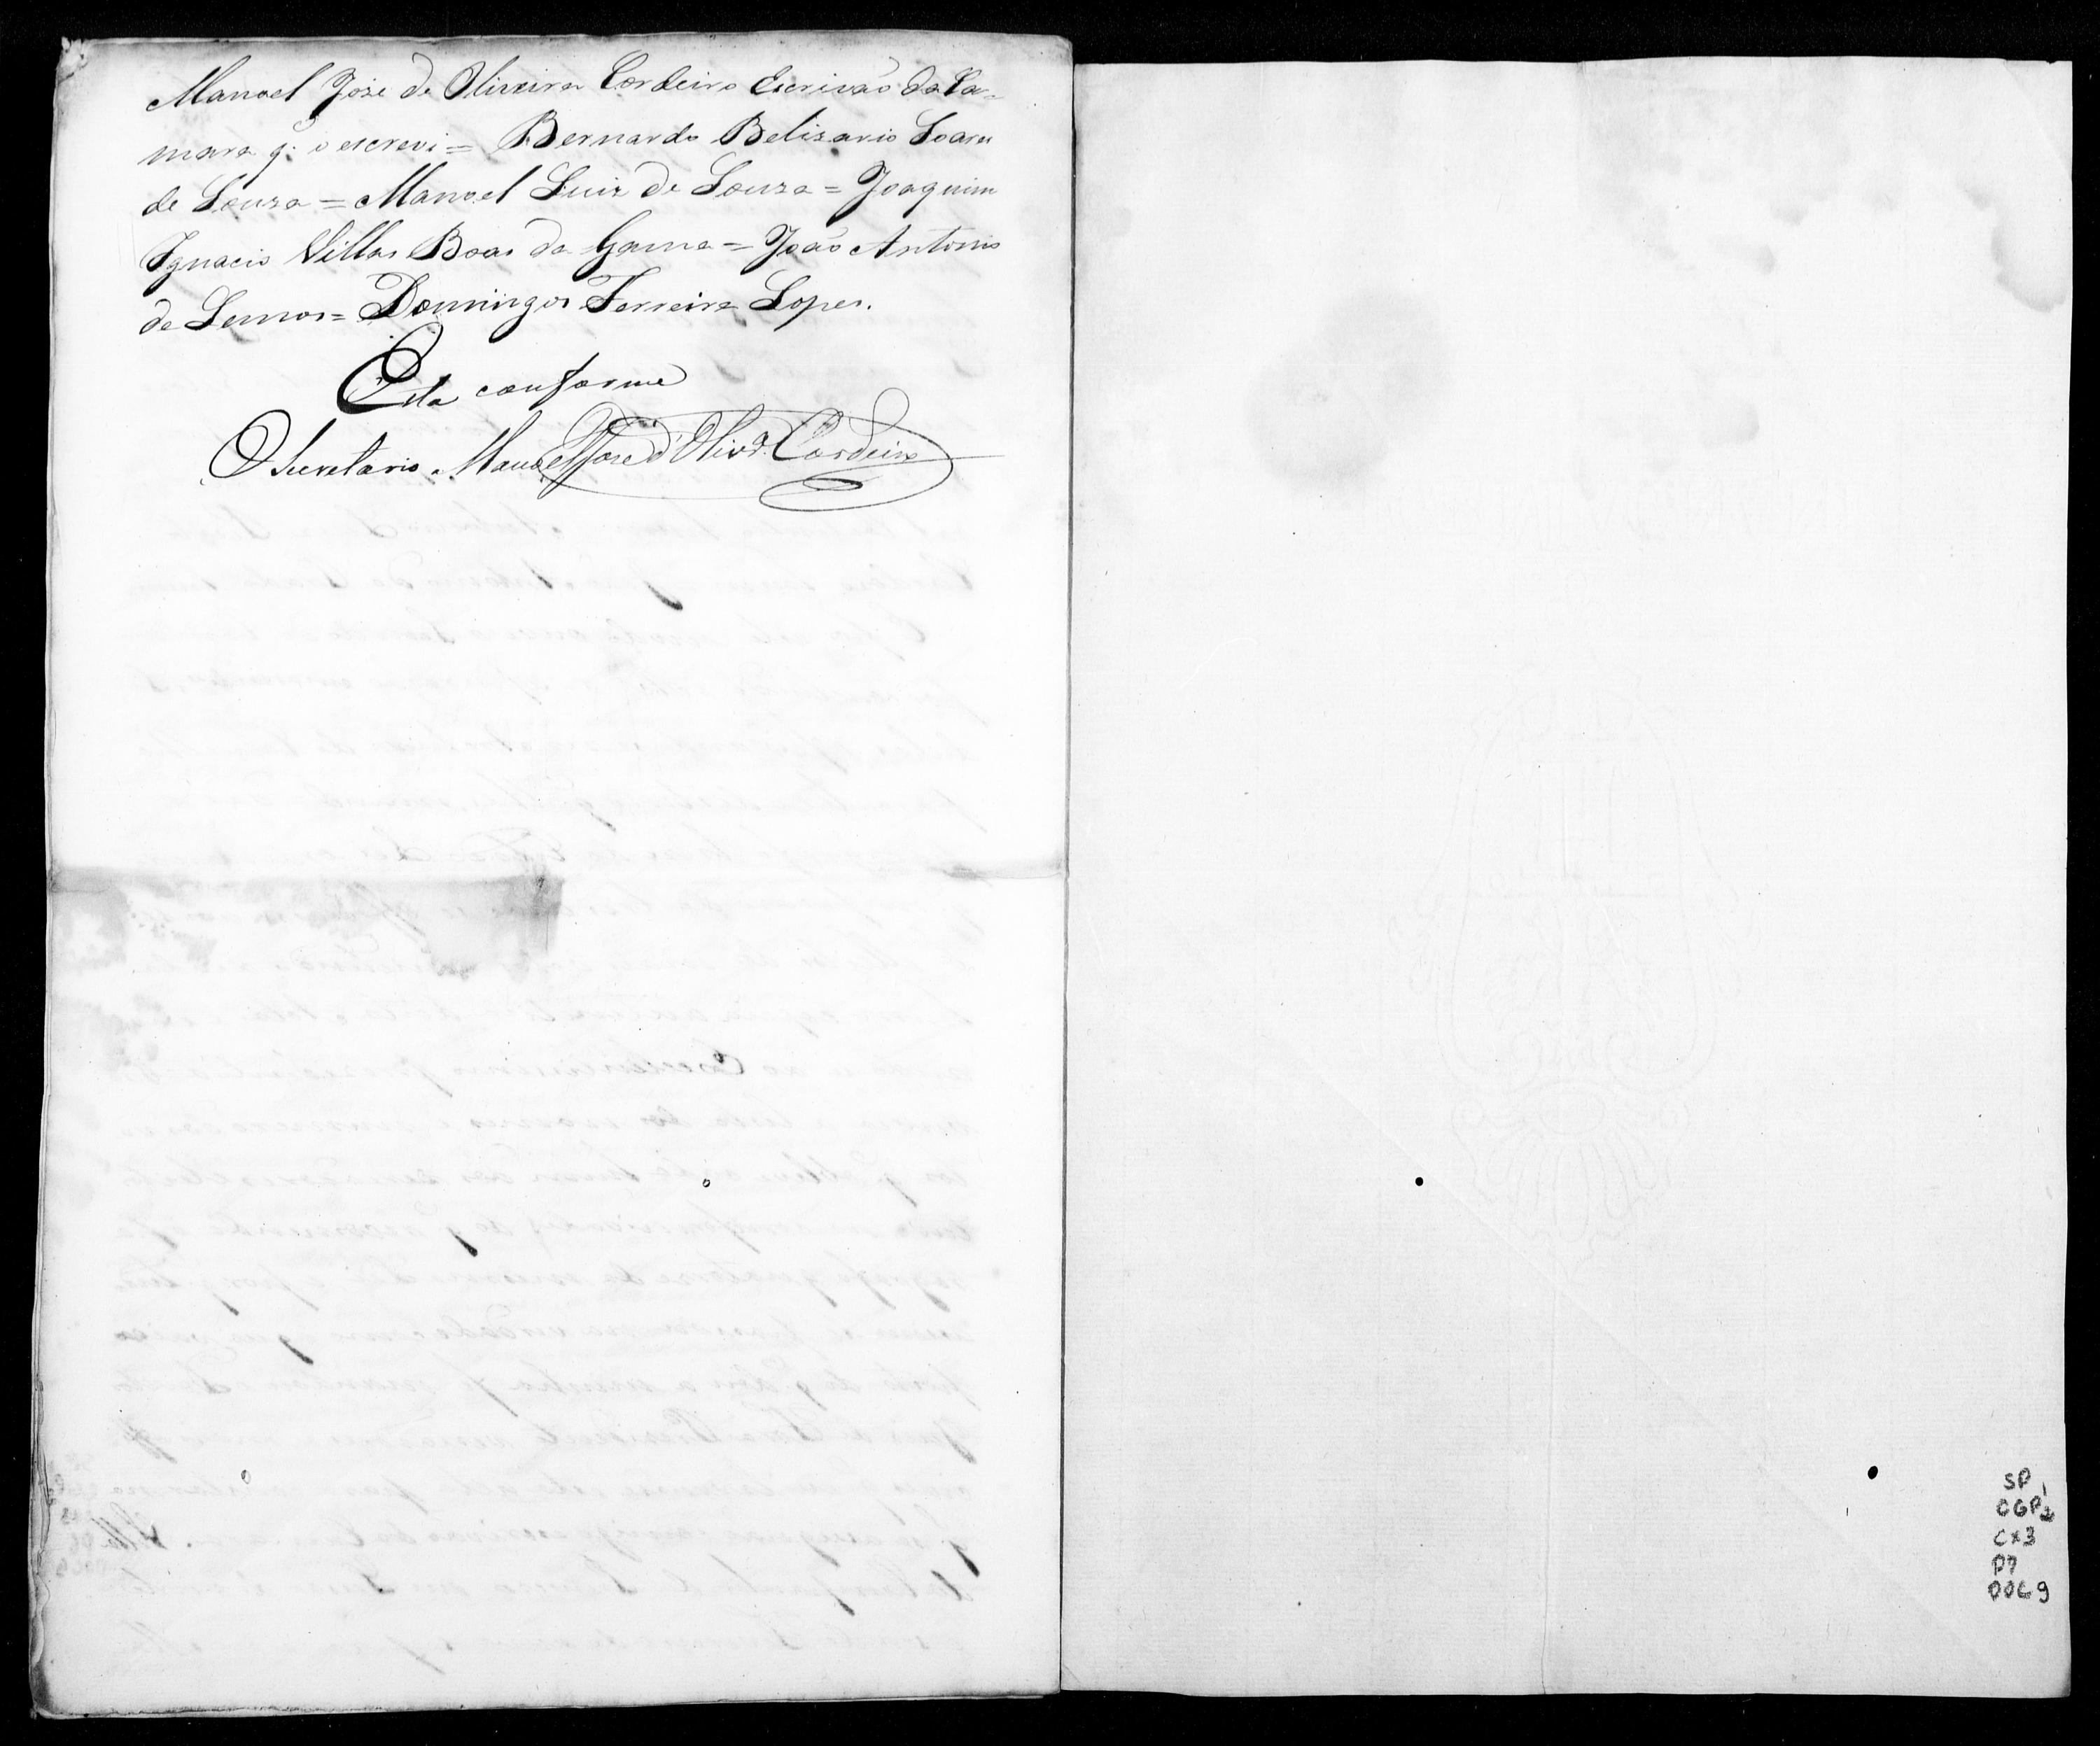 Manoel José de Oliveira Cordeiro Escrivão da Ca=
mara q' o escrevi = Bernardo Belizario Soares
de Souza = Manoel Luiz de Souza = Joaquim
Ignacio Villas Boas da Gama = João Antonio
de Lemos = Domingos Ferreira Lopes.
Está conforme
O Secretario Manoel José d'Olivrª. Cordeiro
SP
CGP 1/2
Cx3
P7
DOC 9